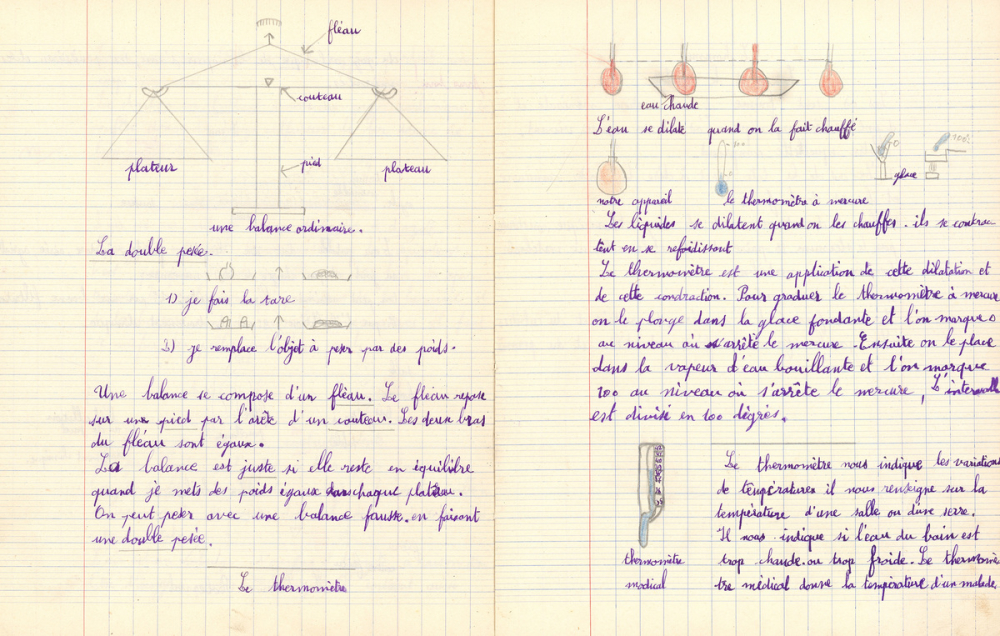 fléau
couteau
plateur
pied
plateau
une balance ordinaire.
La double pesée.
1) je fais la tare
2) je remplace l'objet à peser par des poids.
Une balance se compose d'un fléau. Le fléau repose
sur une pied par l'arête d'un couteau. Les deux bras
du fléau sont égaux.
La balance est juste si elle reste en équilibre
quand je mets des poids égaux dans chaque plateau.
On peut peser avec une balance fausse. en faisont
une double pesée.
Le thermomètre
eau chaude
L'eau se dilate quand on la fait chauffé
100
0
0
100
glace
notre appareil
le thermomètre à mercure
Les liquides se dilatent quand on les chauffes. ils se contrac
tent en se refoidissant
Le thermomètre est une application de cette dilatation et
de cette condraction. Pour graduer le thermomètre à mercure
on le plonge dans la glace fondante et l'on marque o
au niveau où s'arrête le mercure. Ensuite on le place
dans la vapeur d'eau bouillante et l'on marque
100 au niveau où s'arrête le mercure, L'intervalle
est divisé en 100 dègrés.
Le thermomètre nous indique les variations
de températures il nous renseigne sur la
température d'une salle ou d'une serre.
Il nous indique si l'eau du bain est
trop chaude. ou trop froide. Le thermomè
tre médical donne la température d'un malade.
thermomètre
modical